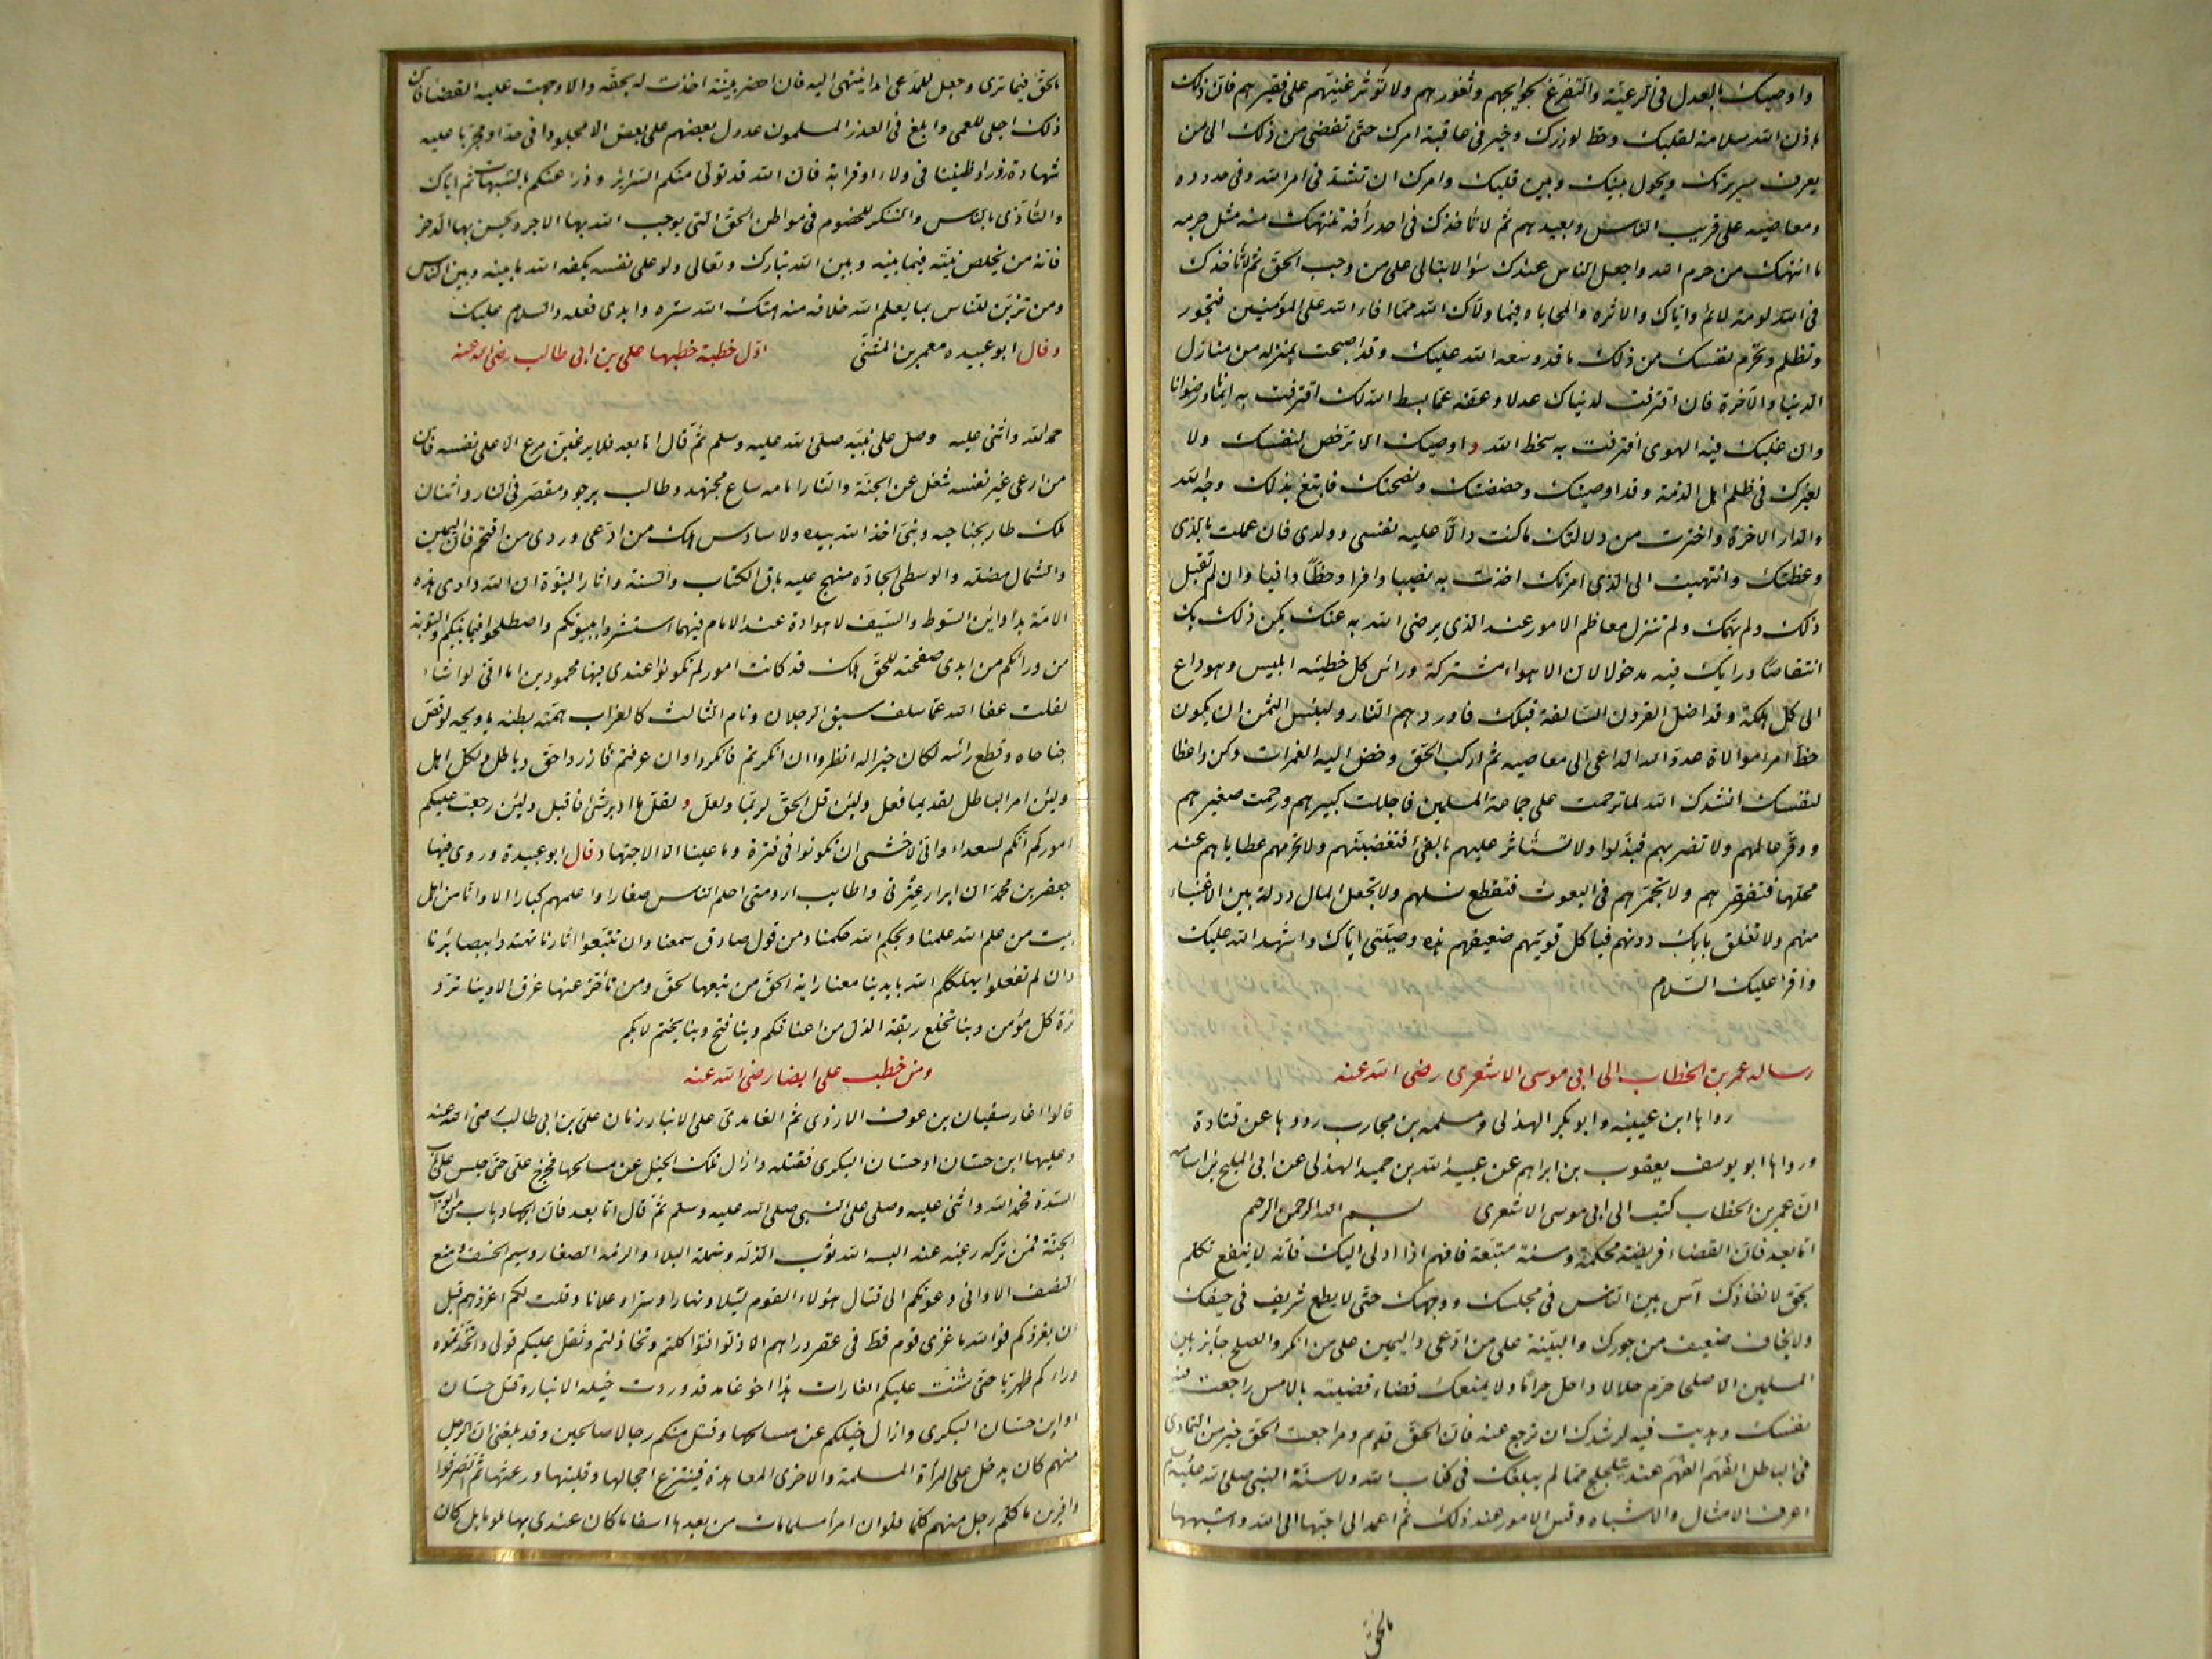 واوصيك بالعدل فى الرعية والتفرغ لحوايجهم وثغورهم ولا تؤثر غنيهم على فقيرهم فان ذلك
باذن الله سلامة لقلبك وحط لوزرك وخير فى عاقبة امرك حتى تفضى من ذلك الى من
يعرف سريرتك ويحول بينك وبين قلبك وامرك ان تشتد فى امر الله وفى حدوده
ومعاصيه على قريب الناس وبعيدهم ثم لا تأخذك فى احد رأفة تنتهك منه مثل جرمه
ما انتهك من حرم الله واجعل الناس عندك سواء لا تبالى على من وجب الحق ثم لا تأخذك
فى الله لومة لائم واياك والاثره والمحاباه فيما ولاك الله مما افاء الله على المؤمنين فتجور
وتظلم وتحرم نفسك من ذلك ما قد وسعه الله عليك وقد اصبحت بمنزله من منازل
الدنيا والآخرة فان اقترفت لدنياك عدلا وعفة عما بسط الله لك اقترفت به ايمانا ورضوانا
وان غلبك فيه الهوى اقترفت به سخط الله واوصيك الا ترخص لنفسك ولا
لغيرك فى ظلم اهل الذمة وقد اوصيتك وحضضتك ونصحتك فابتغ بذلك وجه الله
والدار الاخرة واخترت من دلالتك ما كنت دالا عليه نفسى وولدى فان عملت بالذى
وعظتك وانتهيت الى الذى امرتك اخذت به نصيبا وافرا وحظا وافيا وان لم تقبل
ذلك ولم يهمك ولم تنزل معاظم الامور عند الذى يرضى الله به عنك يكن ذلك بك
انتقاصا ورايك فيه مدخولا لان الاهواء مشتركة ورائس كل خطيئه ابليس وهو داع
الى كل هلكة وقد اضل القرون السالفة قبلك فاوردهم النار ولبئس الثمن ان يكون
حظ امرء موالاة عدو الله الداعى الى معاصيه ثم اركب الحق وخض اليه الغمرات وكن واعظا
لنفسك انشدك الله لما ترحمت على جماعة المسلمين فاجللت كبيرهم ورحمت صغيرهم
ووقر عالمهم ولا تضربهم فيذلوا ولا تستأثر عليهم بالفئ فتغضبهم ولا تحرمهم عطاياهم عند
محلها فتفقرهم ولا تجمرهم فى البعوث فتقطع نسلهم ولا تجعل المال دولة بين الاغنياء
منهم ولا تغلق بابك دونهم فياكل قويهم ضعيفهم هذه وصيتى اياك واشهد الله عليك
واقرا عليك السلام
رساله عمر بن الخطاب الى ابى موسى الاشعرى رضى الله عنه
رواها ابن عيينه وابو بكر الهذلى ومسلمه بن محارب رووها عن قتادة
ورواها ابو يوسف يعقوب بن ابراهيم عن عبيد الله بن حميد الهذلى عن ابى المليح بن اسامه
ان عمر بن الخطاب كتب الى ابى موسى الاشعرى بسم الله الرحمن الرحيم
اما بعد فان القضاء فريضة محكمة وسنة متبعة فافهم اذا ادلى اليك فانه لا ينفع تكلم
بحق لا نفاذ له آس بين الناس فى مجلسك ووجهك حتى لا يطمع شريف فى حيفك
ولا يخاف ضعيف من جورك والبينة على من ادعى واليمين على من انكر والصلح جايز بين
المسلمين الا صلحا حرم حلالا واحل حراما ولا يمنعك قضاء قضيته بالامس راجعت فيه
نفسك وهديت فيه لرشدك ان ترجع عنه فان الحق قديم ومراجعة الحق خير من التمادى
فى الباطل الفهم الفهم عند ما يتلجلج مما لم يبلغك فى كتاب الله ولا سنة النبى صلى الله عليه وسلم
اعرف الامثال والاشباه وقس الامور عند ذلك ثم اعمد الى احبها الى الله واشبهها
بالحق
بالحق فيما ترى وجعل للمدعى امدا ينتهى اليه فان احضر بينة اخذت له بحقه والا وجبت عليه القضاء فان
ذلك اجلى للعمى وابلغ فى العذر المسلمون عدول بعضهم على بعض الا مجلودا فى حد او مجربا عليه
شهادة زور او ظنينا فى ولاء او قرابة فان الله قد تولى منكم السرائر ودرا عنكم بالشبهات ثم اياك
والتأذى بالناس والتنكر للخصوم فى مواطن الحق التى يوجب الله بها الاجر ويحسن بها الذخر
فانه من يخلص نيته فيما بينه وبين الله تبارك وتعالى ولو على نفسه يكفه الله ما بينه وبين الناس
ومن تزين للناس بما يعلم الله خلافه منه هتك الله ستره وابدى فعله والسلام عليك
وقال ابو عبيده معمر بن المثنى اول خطبة خطبها على بن ابى طالب رضى الله عنه
حمد الله واثنى عليه وصل على نبيه صلى الله عليه وسلم ثم قال اما بعد فلا يرعين مرع الا على نفسه فان
من ارعى غير نفسه شغل عن الجنة والنار امامه ساع مجتهد وطالب يرجو ومقصر فى النار واثنان
ملك طار بجناحيه ونبى اخذ الله بيده ولا سادس هلك من ادعى وردى من اقتحم فان اليمين
والشمال مضلة والوسطى الجاده منهج عليه باق الكتاب والسنة واثار النبوة ان الله داوى هذه
الامة بدأوئين السوط والسيف لا هوادة عند الامام فيهما استتشروا ببيوتكم واصطلحوا فيما بينكم والتوبة
من ورائكم من ابدى صفحته للحق هلك قد كانت امور لم تكونوا عندى فيها محمودين اما انى لو اشاء
لقلت عفا الله عما سلف سبق الرجلان ونام الثالث كالغراب همته بطنه ياويحه لو قص
جناحاه وقطع رائسه لكان خيرا له انظروا ان انكرتم فانكروا وان عرفتم فازروا حق وباطل ولكل اهل
ولئن امر الباطل لقديما فعل ولئن قل الحق لربما ولعل ولقل ما ادبر شئ فاقبل ولئن رجعت عليكم
اموركم انكم لسعداء وانى لاخشى ان تكونوا فى فترة وما علينا الا الاجتهاد قال ابو عبيدة وروى فيها
جعفر بن محمد ان ابرار عترتى واطايب ارومتى احلم الناس صغارا واعلمهم كبارا الا وانا من اهل
بيت من علم الله علمنا وبحكم الله حكمنا ومن قول صادق سمعنا وان تتبعوا اثارنا تهتدوا ببصائرنا
وان لم تفعلوا يهلككم الله بايدينا معنا راية الحق من تبعها لحق ومن تأخر عنها غرق الا وبنا ترد
ترة كل مؤمن وبنا تخلع ربقة الذل من اعناقكم وبنا فتح وبنا يختم لا بكم
ومن خطب على ايضا رضى الله عنه
قالوا اغار سفيان بن عوف الازدى ثم الغامدى على الانبار زمان على بن ابى طالب رضى الله عنه
وعليها ابن حسان او حسان البكرى فقتله وازال تلك الخيل عن مسالحها فخرج على حتى جلس على باب
السدة فحمد الله واثنى عليه وصلى على النبى صلى الله عليه وسلم ثم قال اما بعد فان الجهاد باب من ابواب
الجنة فمن تركه رغبه عنه البسه الله ثوب الذله وشمله البلاء والزمه الصغار وسيم الخسف ومنع
النصف الا وانى دعوتكم الى قتال هؤلاء القوم ليلا ونهارا وسرا وعلانا وقلت لكم اغزوهم قبل
ان يغزوكم فو الله ما غزى قوم قط فى عقر دارهم الا ذلوا فتواكلتم وتخاذلتم وثقل عليكم قولى واتخذتموه
وراءكم ظهريا حتى شنت عليكم الغارات هذا اخو غامد قد وردت خيله الانبار وقتل حسان
او ابن حسان البكرى وازال خيلكم عن مسالحها وقتل منكم رجالا صالحين وقد بلغنى ان الرجل
منهم كان يدخل على المرأة المسلمة والاخرى المعاهدة فينتزع احجالها وقلبها ورعثها ثم انصرفوا
وافرين ما كلم رجل منهم كلما فلو ان امرأ مسلما مات من بعد هذا اسفا ما كان عندى بها ملوما بل كان